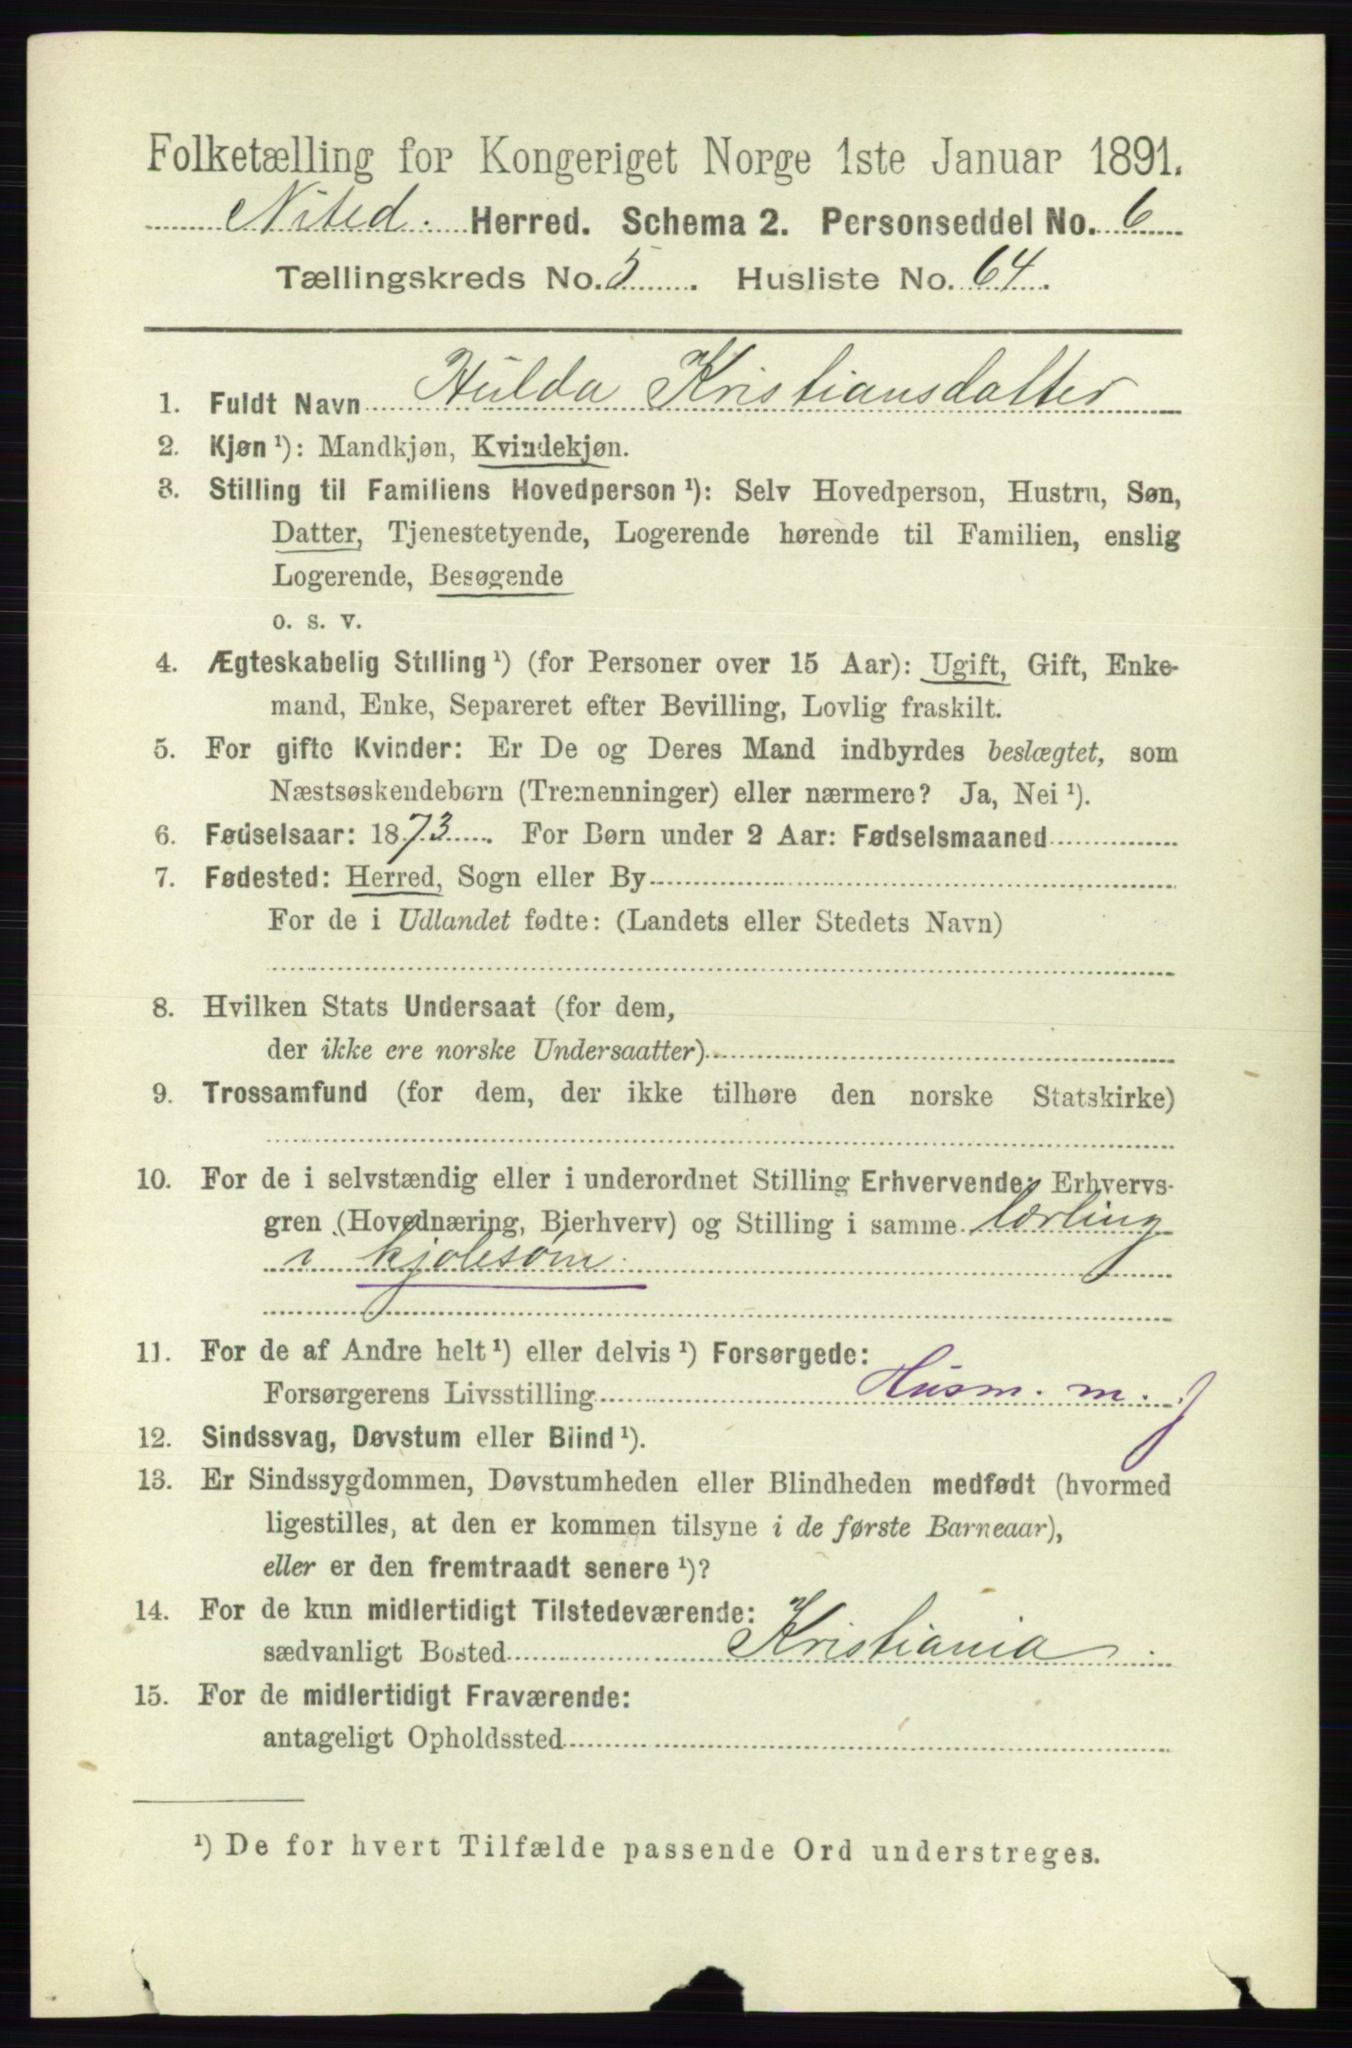 Folketælling for Kongeriget Norge 1ste Januar 1891.
Nited. Herred. Schema 2. Personseddel No. 6
Tællingskreds No. 5. Husliste No. 64.
1. Fuldt Navn Hulda Kristiansdatter
2. Kjøn ¹): Mandkjøn, Kvindekjøn.
3. Stilling til Familiens Hovedperson ¹): Selv Hovedperson, Hustru, Søn,
Datter, Tjenestetyende, Logerende hørende til Familien, enslig
Logerende, Besøgende
o. s. v.
4. Ægteskabelig Stilling ¹) (for Personer over 15 Aar): Ugift, Gift, Enke-
mand, Enke, Separeret efter Bevilling, Lovlig fraskilt.
5. For gifte Kvinder: Er De og Deres Mand indbyrdes beslægtet, som
Næstsøskendebørn (Tremenninger) eller nærmere? Ja, Nei ¹).
6. Fødselsaar: 1873. For Børn under 2 Aar: Fødselsmaaned
7. Fødested: Herred, Sogn eller By
For de i Udlandet fødte: (Landets eller Stedets Navn)
8. Hvilken Stats Undersaat (for dem,
der ikke ere norske Undersaatter)
9. Trossamfund (for dem, der ikke tilhøre den norske Statskirke)
10. For de i selvstændig eller i underordnet Stilling Erhvervende: Erhvervs-
gren (Hovednæring, Bierhverv) og Stilling i samme lærling
i kjolesøm.
11. For de af Andre helt ¹) eller delvis ¹) Forsørgede:
Forsørgerens Livsstilling Husm. m. j
12. Sindssvag, Døvstum eller Blind ¹).
13. Er Sindssygdommen, Døvstumheden eller Blindheden medfødt (hvormed
ligestilles, at den er kommen tilsyne i de første Barneaar),
eller er den fremtraadt senere ¹)?
14. For de kun midlertidigt Tilstedeværende:
sædvanligt Bosted Kristiania.
15. For de midlertidigt Fraværende:
antageligt Opholdssted
¹) De for hvert Tilfælde passende Ord understreges.